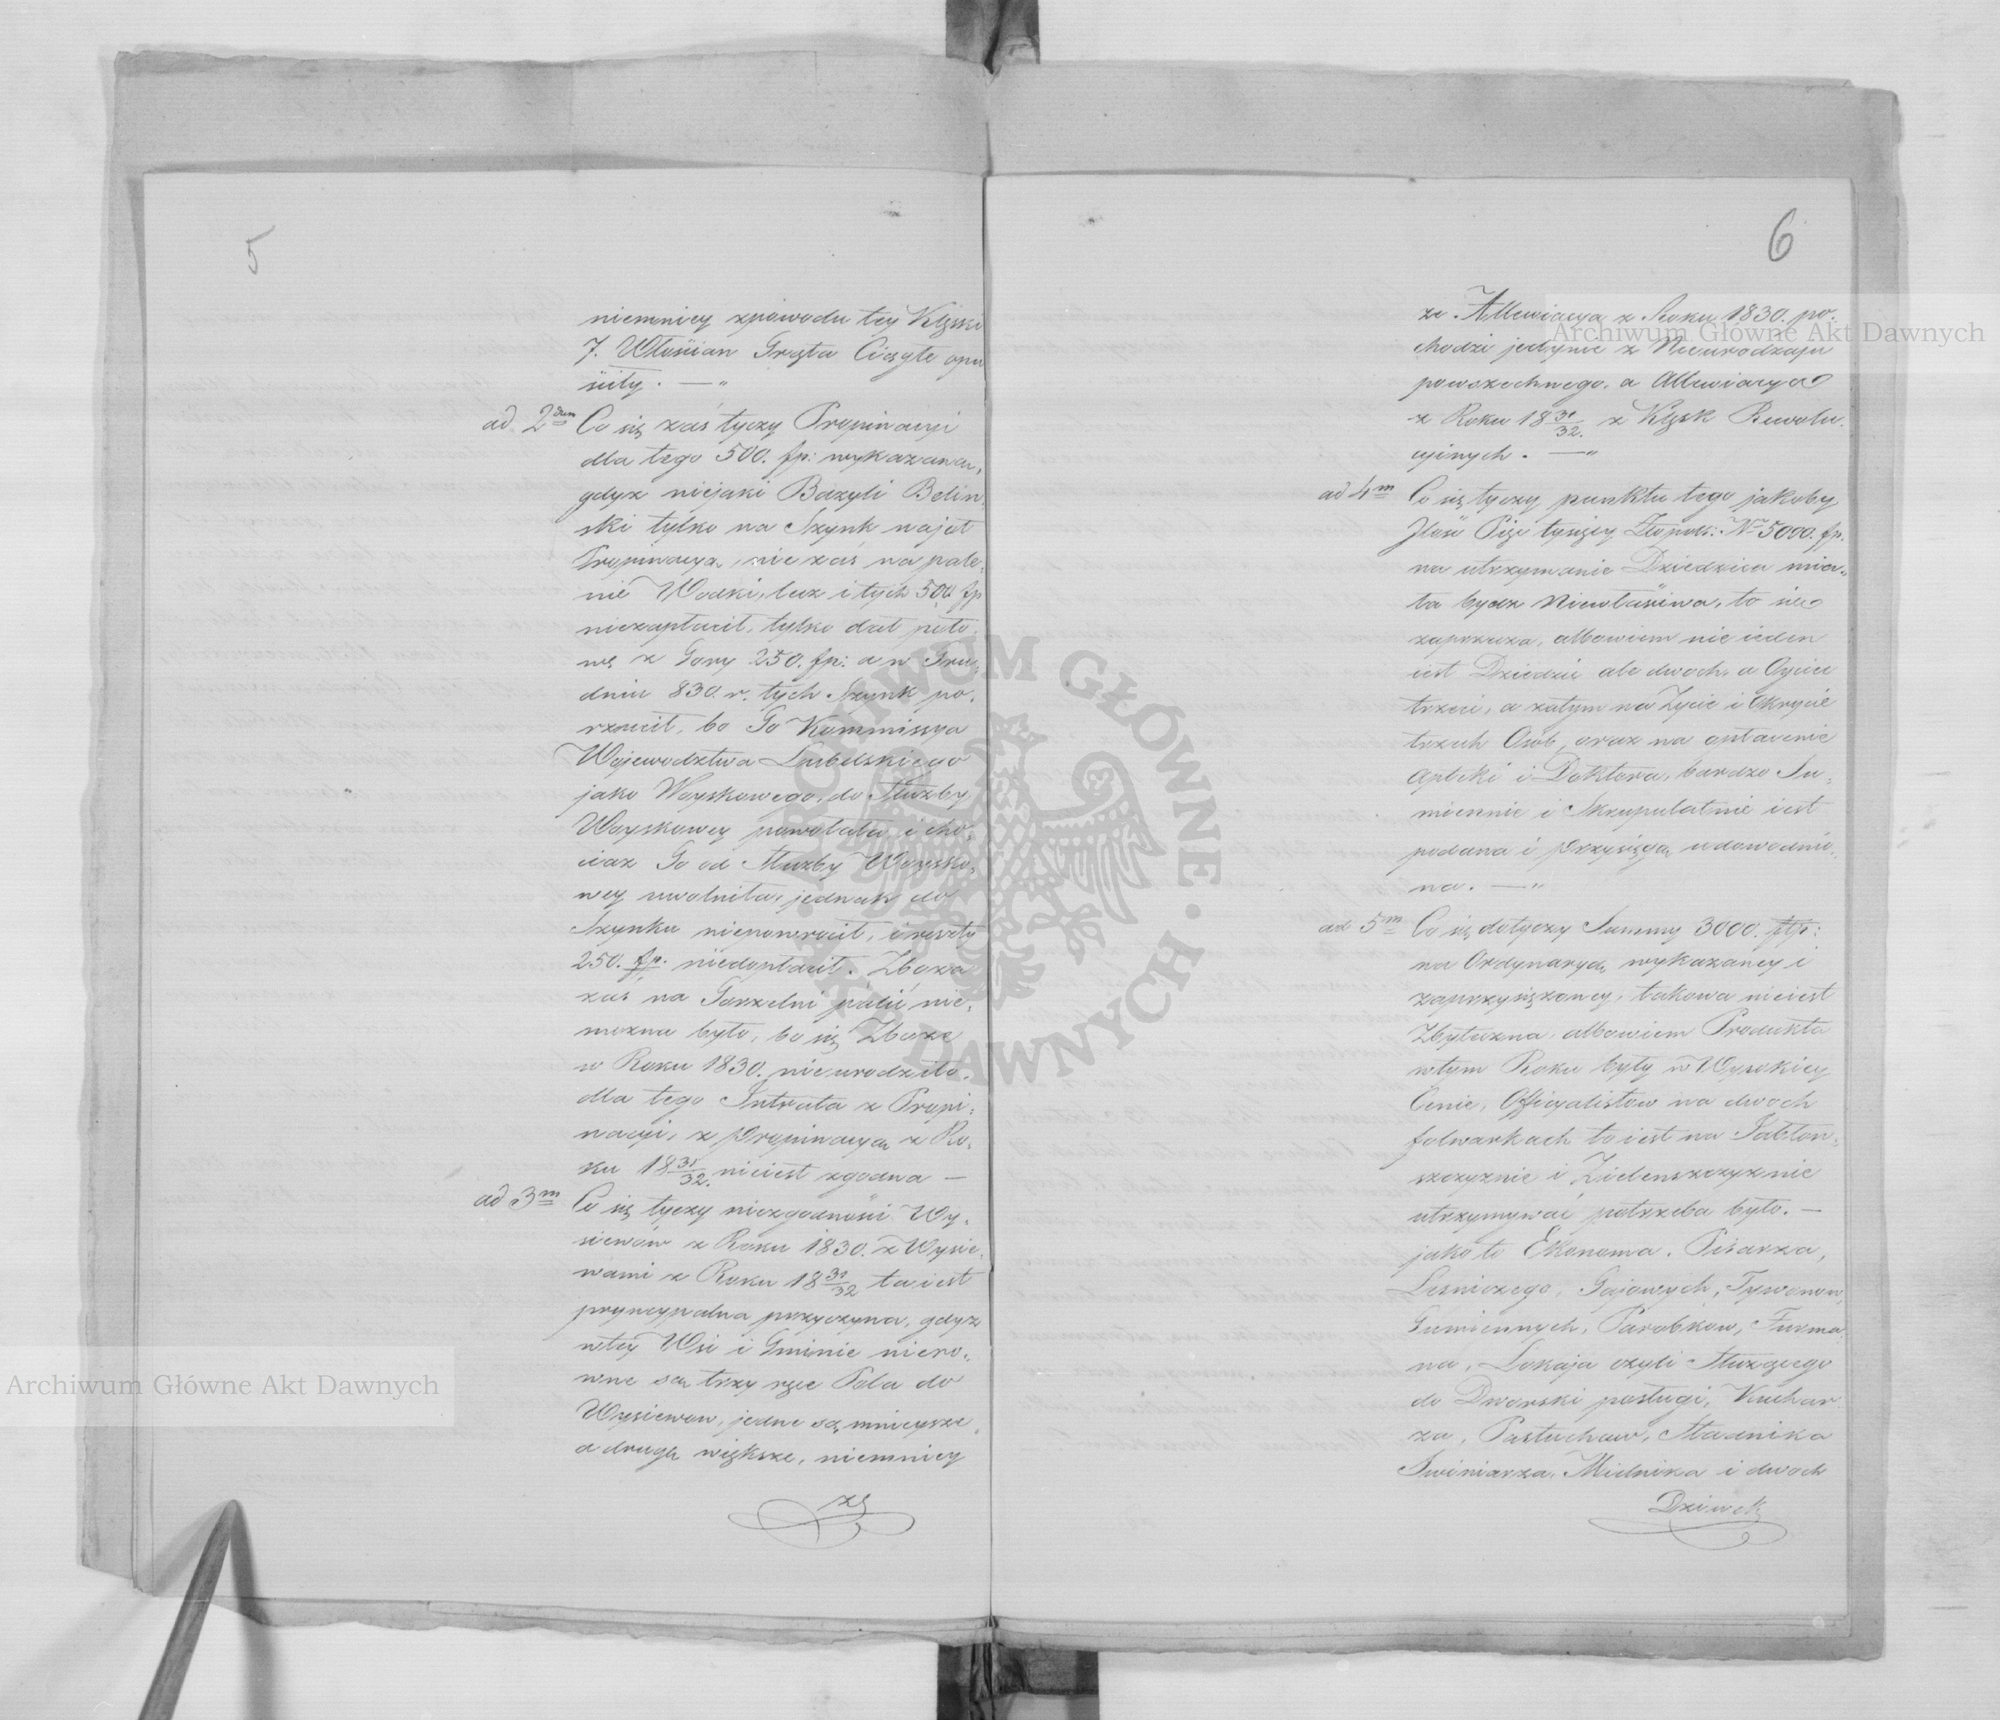 5
niemniey zpowodu tey Klęski
7. Włośćian Grąta Ciągłe opu
śćiły. —„
ad 2dum Co się zaś tyczy Propinacyi
dla tego 500. fp: wykazana,
gdyż niejaki Bazyli Belin
ski tylko na Szynk najął
Propinacyą, nie zaś na pale,
nie Wodki, lecz i tych 500 fp
niezapłacił, tylko dał poło
wę z Gory 250. fp: a w Gru,
dniu 830. r. tych Szynk po,
rzucił, bo Go Kommissya
Wojewodztwa Lubelskiego
jako Woyskowego, do Służby
Woyskowey powołała, i cho,
ciaz Go od Służby Woysko,
wey uwolniła, jednak do
Szynku niepowrocił, i reszty
250. fp. niedopłacił. Zboża
zaś na Gorzelni palić nie,
mozna było, bo się Zboże
w Roku 1830. nieurodziło,
dla tego Intrata z Propi,
nacyi, z Propinacyą z Ro,
ku 18 31/32. nieiest zgodna —
ad 3m Co się tyczy niezgodnośći Wy,
siewów z Roku 1830. z Wysie,
wami z Roku 18 31/32 ta iest
pryncypalna przyczyna, gdyż
wtey Wsi i Gminie niero,
wne są trzy ręce Pola do
Wysiewow, jedne są mnieysze,
a drugą większe, niemniey
że
6
ze Allewiacya z Roku 1830. po,
chodzi jedynie z Nieurodzaju
powszechnego, a Allewiacya
z Roku 18 31/32. z Klęsk Rewolu,
cyinych. —„
ad 4m Co się tyczy punktu tego jakoby
Ilość Pięć tysięcy Złopols: Nro 5000. fp.
na utrzymanie Dziedzica mia,
ła bydz Niewłaściwa, to się
zaprzecza, albowiem nie ieden
iest Dziedzic ale dwoch, a Oyciec
trzeci, a zatym na Zycie i Okrycie
trzech Osob, oraz na opłacenie
Apteki i Doktora, bardzo Su,
miennie i Skrupulatnie iest
podana i przysięgą udowodnio,
na. —„
ad 5m Co się dotyczy Summy 3000. złp:
na Ordynaryą wykazaney i
zaprzysiężoney, takowa nieiest
Zbyteczna, albowiem Produkta
wtym Roku były w Wysokiey
Cenie, Officyalistow na dwoch
folwarkach to iest na Jabłon,
szczyznie i Zielenszczyznie
utrzymywać potrzeba było. —
jako to Ekonoma, Pisarza,
Lesniczego, Gajowych, Tywonow,
Gumiennych, Parobkow, Furma,
na, Lokaja czyli Służącego
do Dworski posługi, Kuchar,
za, Pastuchow, Stadnika
Swiniarza, Mielnika i dwoch
Dziwek
Archiwum Główne Akt Dawnych
Archiwum Główne Akt Dawnych
ARCHIWUM GŁÓWNE AKT DAWNYCH